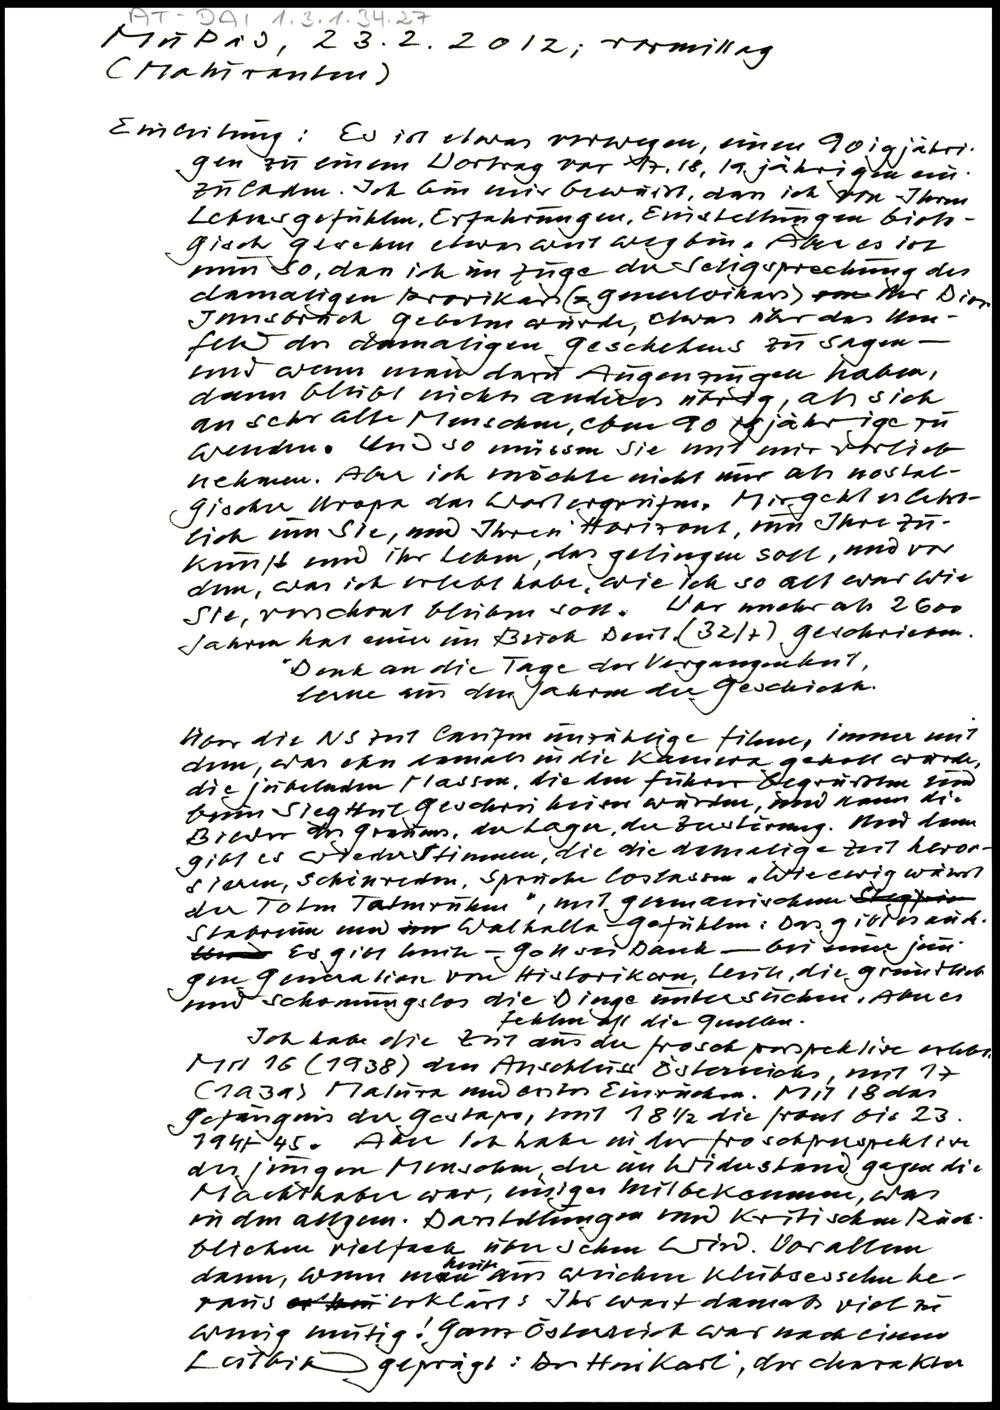 AT-DAI 1.3.1.34.27
MüPäd, 23.2.2012; vormittag
(Maturanten)
Einleitung: Es ist etwas verwegen, einen 90igjähri-
gen zu einem Vortrag vor 17, 18, 19 jährigen ein-
zuladen. Ich bin mir bewusst, dass ich von Ihren
Lebensgefühlen, Erfahrungen, Einstellungen biolo-
gisch gesehen etwas weit weg bin. Aber es ist
nun so, dass ich im Zuge der Seligsprechung des
damaligen Provikars (= Generalvikars) der Diöz.
Innsbruck gebeten wurde, etwas über das Um-
feld des damaligen Geschehens zu sagen —
und wenn man dazu Augenzeugen haben,
dann bleibt nichts anderes übrig, als sich
an sehr alte Menschen, eben 90 jährige zu
wenden. Und so müssen Sie mit mir vorlieb
nehmen. Aber ich möchte nicht nur als nostal-
gischer Uropa das Wort ergreifen. Mir geht es letzt-
lich um Sie, und Ihren Horizont, um Ihre Zu-
kunft und ihr Leben, das gelingen soll, und vor
dem, was ich erlebt habe, wie ich so alt war wie
Sie, verschont bleiben soll. Vor mehr als 2600
Jahren hat einer im Buch Deut. (32/7) geschrieben.
"Denk an die Tage der Vergangenheit,
lerne aus den Jahren der Geschichte.
Über die NS Zeit laufen unzählige Filme, immer mit
dem, was eben damals in die Kamera geholt wurde,
die jubelnden Massen, die den Führer begrüßten und
beim Sieg Heil Geschrei heiser wurden, und dann die
Bilder des Grauens, der Lager, der Zerstörung. Und dann
gibt es wieder Stimmen, die die damalige Zeit heroi-
sieren, schönreden, Sprüche loslassen „Wie ewig währt
der Toten Tatenruhm", mit germanischem
Stabreim und Walhalla-Gefühlen: Das gibt es auch.
Es gibt heute — Gott sei Dank — bei einer jun-
gen Generation von Historikern, Leute, die gründlich
und schonungslos die Dinge untersuchen. Aber es
fehlen oft die Quellen.
Ich habe die Zeit aus der Froschperspektive erlebt.
Mit 16 (1938) den Anschluss Österreichs, mit 17
(1939) Matura und erstes Einrücken. Mit 18 das
Gefängnis der Gestapo, mit 18 1/2 die Front bis 23.
1945. Aber ich habe in der Froschperspektive
des jungen Menschen, der im Widerstand gegen die
Machthaber war, einiges mitbekommen, was
in den allgem. Darstellungen und kritischen Rück-
blicken vielfach übersehen wird. Vor allem
dann, wenn man heute aus weichen Klubsesseln he-
raus erklärt: Ihr wart damals viel zu
wenig mutig! Ganz Österreich war nach einem
Leitbild geprägt: Der Herr Karl, der charakter